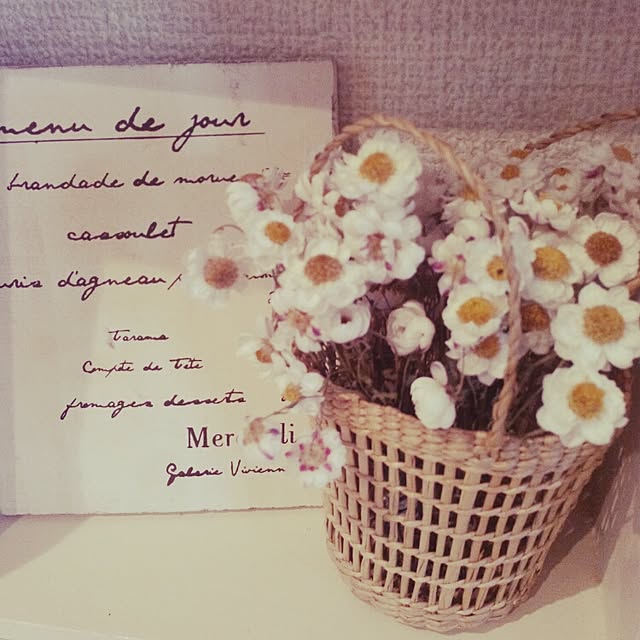 menu de jour
brandade de morue
cassoulet
d'agneau
Tarama
Compte de Tete
fromages desserts
Mer li
Galerie Vivienn